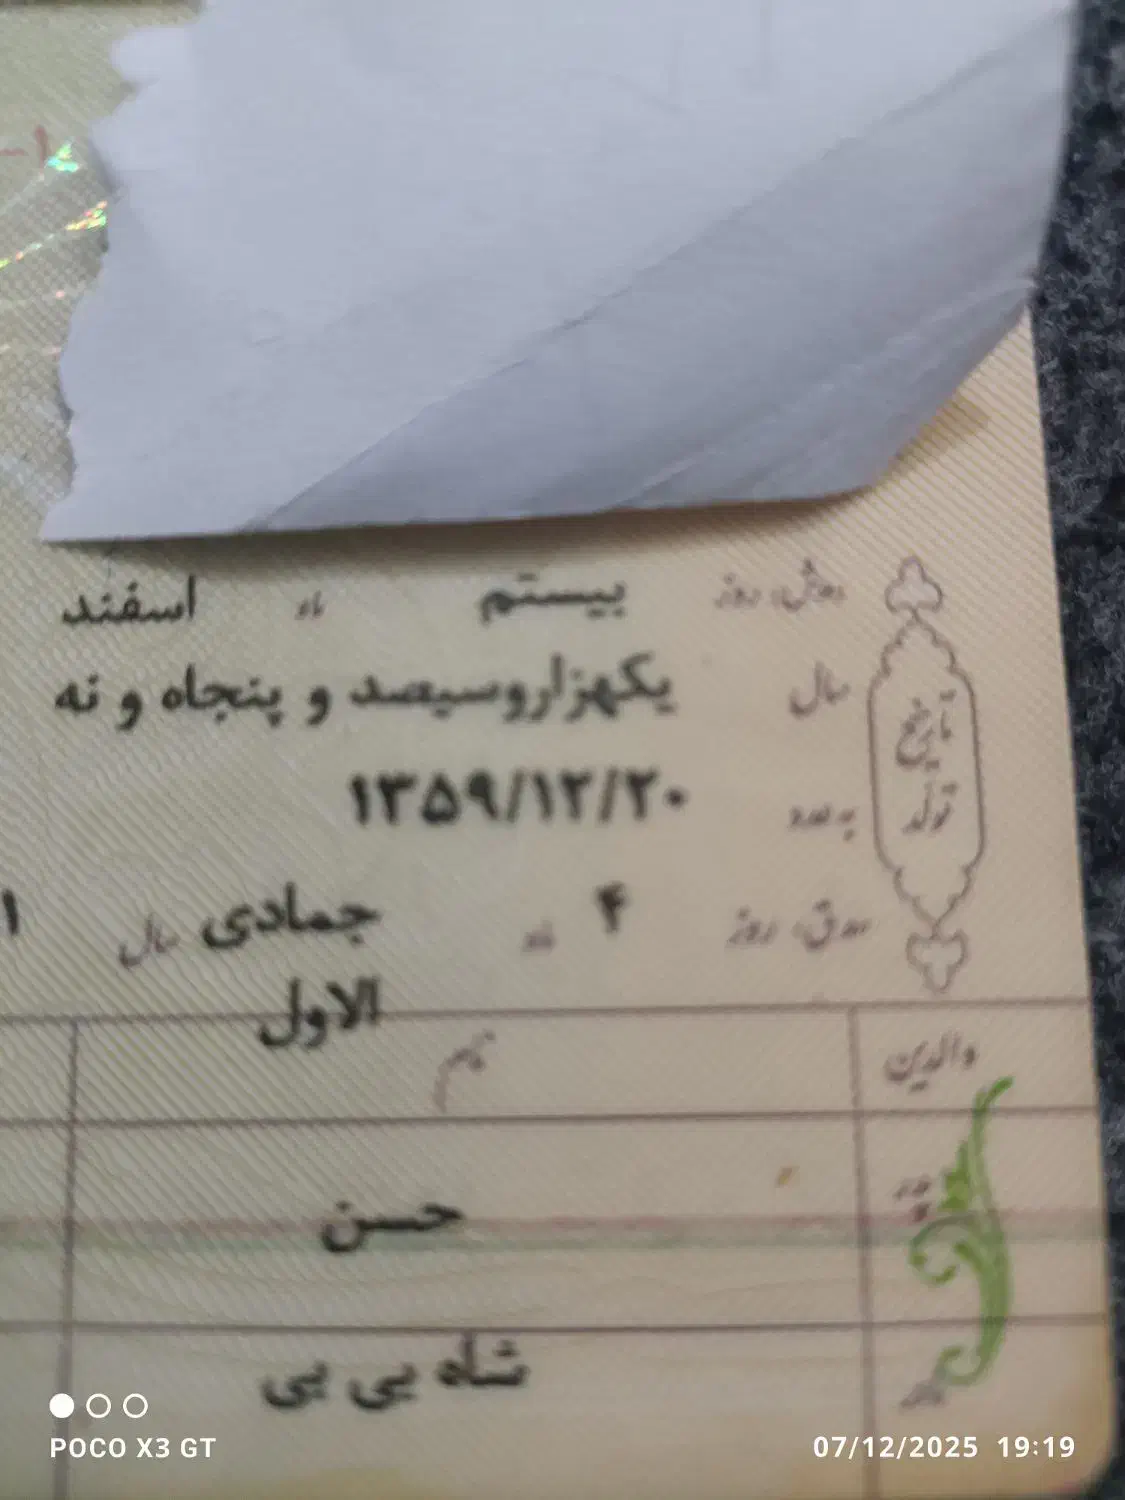 تاریخ تولد
روز بیستم ماه اسفند
سال یکهزاروسیصد و پنجاه و نه
به عدد ۱۳۵۹/۱۲/۲۰
روز ۴ ماه جمادی الاول سال ۱
والدین
نام
پدر
حسن
مادر
شاه بی بی
POCO X3 GT
07/12/2025 19:19